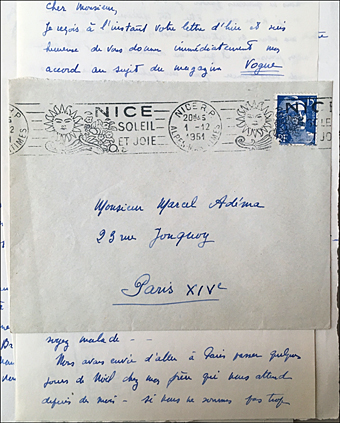 Cher Monsieur,
Je reçois à l'instant votre lettre d'hier et suis
heureuse de vous donner immédiatement mon
accord au sujet du magazine Vogue
NICE
SOLEIL
ET JOIE
NICE R.P.
20H45
1-12
1951
ALPES-MARITIMES
NICE
SOLEIL
ET JOIE
Monsieur Marcel Adéma
23 rue Jonquoy
Paris XIVe
soyez malade - -
Nous avons envie d'aller à Paris passer quelques
jours de Noël chez mon frère qui nous attend
depuis des mois - si nous ne sommes pas trop